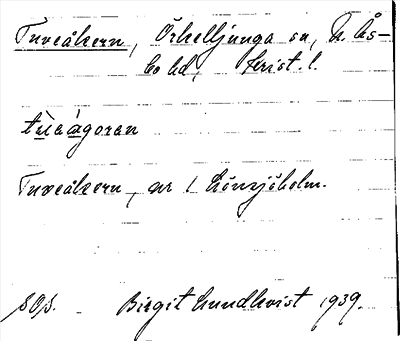 Tuveåkern, Örkelljunga sn, N. Ås-
bo hd, Krist. l.
tùeágoran
Tuveåkern, nr 1 Lönsjöholm.
SOÅ. Birgit Lundkvist 1939.